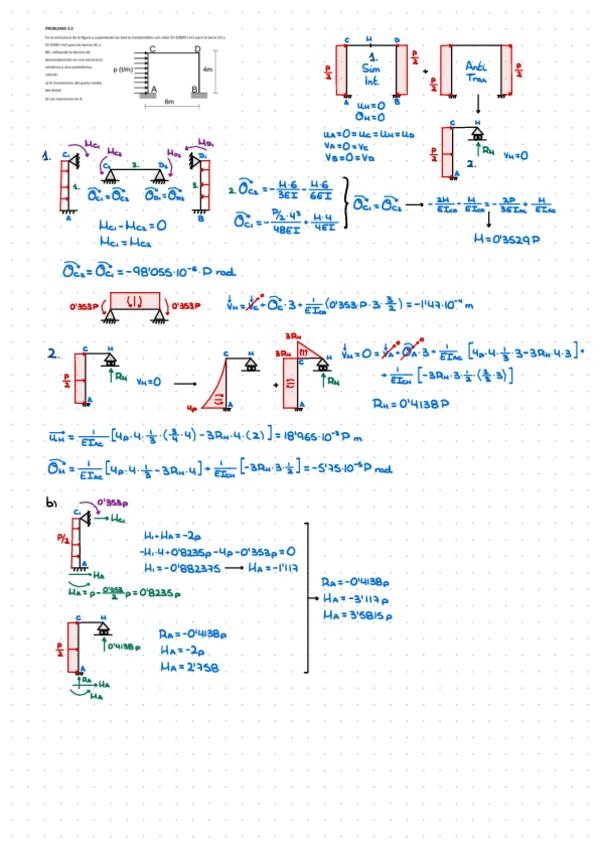 PROBLEMA 3.2
En la estructura de la figura y suponiendo las barras inextensibles con valor
para la barra CD y
para las barras AC y
BD, utilizando la técnica de
descomposición en una estructura
simétrica y otra antimétrica,
calcule:
a) El movimiento del punto medio
del dintel
b) Las reacciones en A
C D
p (t/m)
4m
A B
6m
C H D
1.
Sim
Int.
P/2
P/2
A B
+
Anti
Tran
P/2
P/2
u_H=0
θ_H=0
u_A=0=u_C=u_H=u_D
v_A=0=v_C
v_B=0=v_D
C H
P/2
R_H
v_H=0
A
2.
1.
C_1 M_C1
M_C2
C_2 2. D_2
M_D2
M_D1
D_1
1.
3.
θ_C1=θ_C2 θ_D1=θ_D2
A B
M_C1-M_C2=0
M_C1=M_C2
2. θ_C2=-M·6/3EI-M·6/6EI
θ_C1=-P/2·4³/48EI+M·4/4EI
θ_C1=θ_C2 → -2M/EI_CD-M/EI_CD=-2P/3EI_AC+M/EI_AC
M=0'3529P
θ_C2=θ_C1=-98'055·10⁻⁶·P rad
0'353P 0'353P
v_H=v_C+θ_C·3+1/EI_CD(0'353P·3·3/2)=-1'47·10⁻⁴ m
2.
C H
P/2
R_H
v_H=0
A
→
C H
4P
A
+
3R_H
3R_H
C H
R_H
A
v_H=0=v_A+θ_A·3+1/EI_AC[4P·4·1/3·3-3R_H·4·3]+
+1/EI_CH[-3R_H·3·1/2·(2/3·3)]
R_H=0'4138P
u_H=1/EI_AC[4P·4·1/3·(3/4·4)-3R_H·4·(2)]=18'965·10⁻⁵P m
θ_H=1/EI_AC[4P·4·1/3-3R_H·4]+1/EI_CH[-3R_H·3·1/2]=-5'75·10⁻⁵P rad
b)
0'353P
C_1
H_C1
P/2
A
H_A
M_A=P-0'353/2 P=0'8235P
H_1+H_A=-2P
-H_1·4+0'8235P-4P-0'353P=0
H_1=-0'882375 → H_A=-1'117
C H
P/2
0'4138P
A
R_A
H_A
M_A
R_A=-0'4138P
H_A=-2P
M_A=2'758
R_A=-0'4138P
H_A=-3'117P
M_A=3'5815P